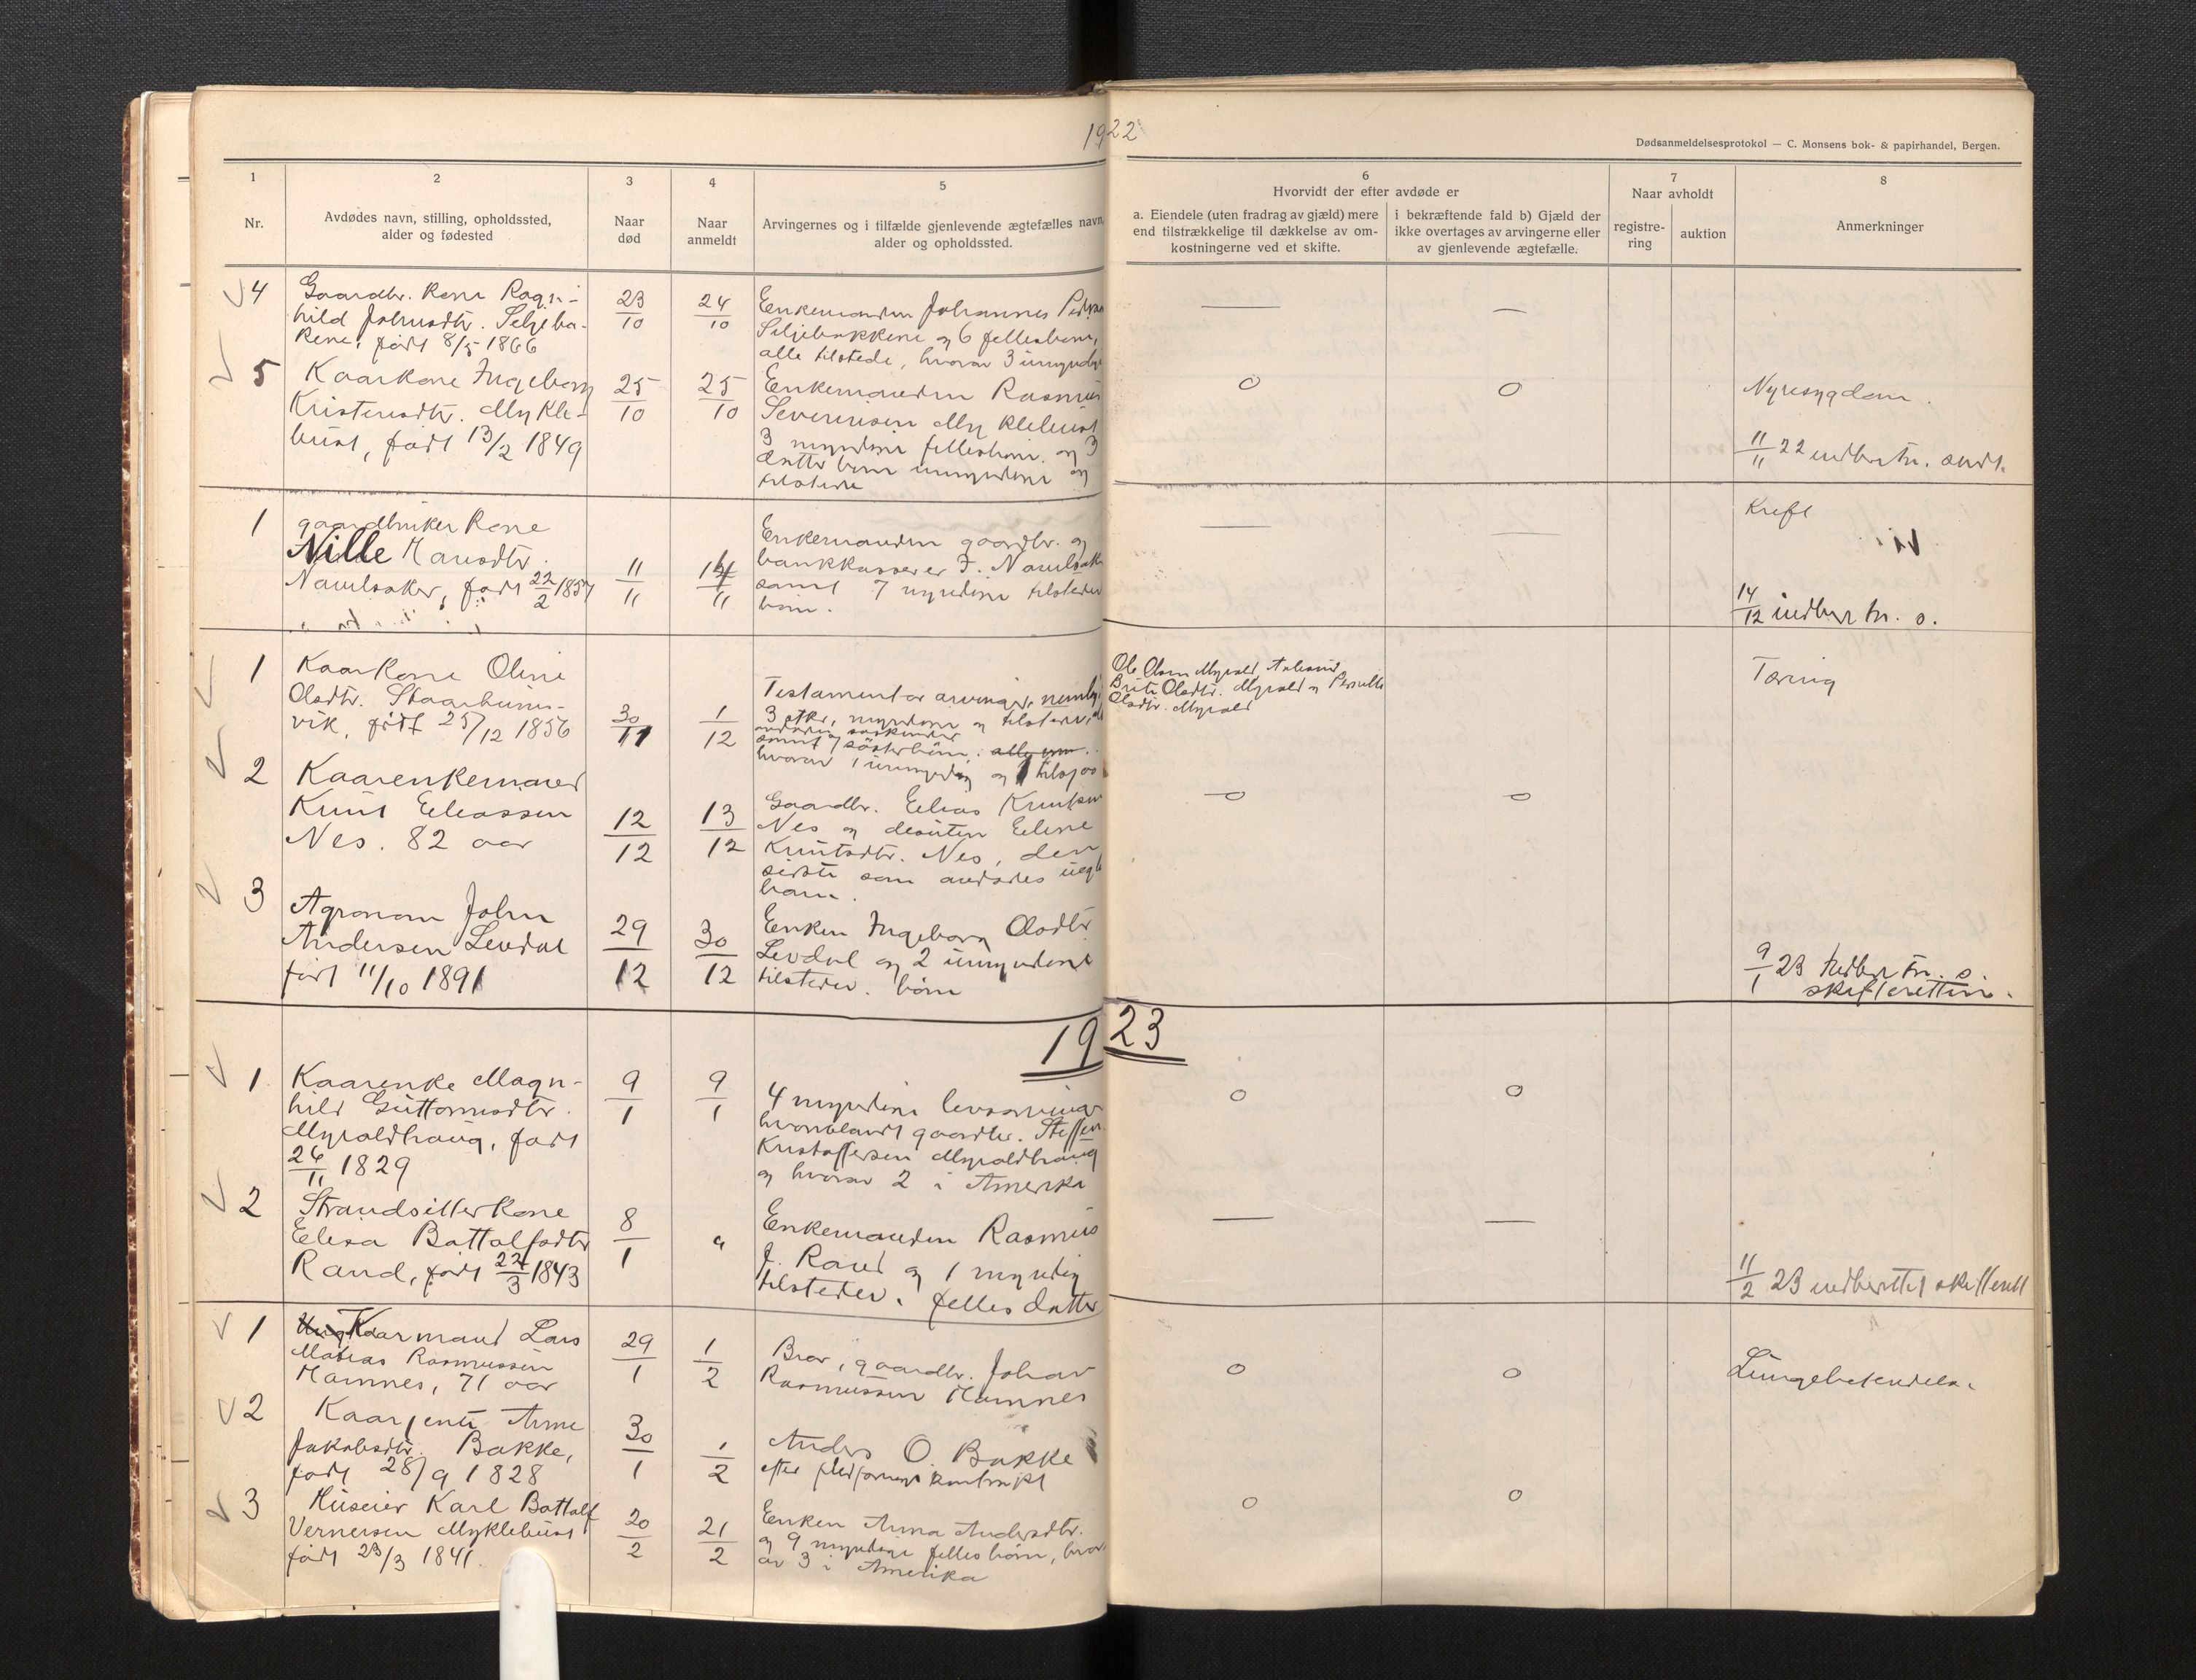 1922
Dødsanmeldelsesprotokol — C. Monsens bok- & papirhandel, Bergen.
1
Nr.
2
Avdødes navn, stilling, opholdssted,
alder og fødested
3
Naar
død
4
Naar
anmeldt
5
Arvingernes og i tilfælde gjenlevende ægtefælles navn,
alder og opholdssted.
6
Hvorvidt der efter avdøde er
a. Eiendele (uten fradrag av gjæld) mere
end tilstrækkelige til dækkelse av om-
kostningerne ved et skifte.
i bekræftende fald b) Gjæld der
ikke overtages av arvingerne eller
av gjenlevende ægtefælle.
7
Naar avholdt
registre-
ring
auktion
8
Anmerkninger
4
Gaardbr. kone Ragn-
hild Johnsdtr. Seljeba-
kene, født 8/5 1866
23/10
24/10
Enkemanden Johannes
Seljebakkene og 6 fellesbørn,
alle tilstede, hvorav 3
—
—
5
Kaarkone Ingeborg
Kristensdtr. Mykle-
bust, født 13/2 1849
25/10
25/10
Enkemanden Rasmus
Severinsen Myklebust
3 myndige fellesbørn og 3
datterbørn umyndige og
tilstede
o
o
Nyresygdom.
11/11 22 indberetn. sendt.
1
gaardbruker kone
Nille Hansdtr.
født 22/2
11/11
11
Enkemanden gaardbr. og
bankkasserer
samt 7 myndige tilstedev
børn.
—
—
Kreft
14/12 indberetn. s.
1
Kaarkone Oline
Olsdtr.
vik, født 25/12 1856
30/11
1/12
Testament ar arvinger, nemlig
3 stkr, myndige og tilstede,
samt 7 søsterbørn,
hvorav 1 umyndig og 1
Ole Olsen Myrold,
Brite Olsdtr. Myrold og Pernille
Olsdtr. Myrold
Tæring
2
Kaarenkemand
Knut Eliassen
Nes. 82 aar
12/12
13/12
Gaardbr. Elias Knutsen
Nes og desuten Eline
Knutsdtr. Nes, den
sidste som
barn.
o
o
3
Agronom John
Andersen Levdal
født 11/10 1891
29/12
30/12
Enken Ingeborg Olsdtr
Levdal og 2 umyndige
tilstedev. børn
9/1 23 indberetn. s.
skifteretten.
1923
1
Kaarenke Magn-
hild Guttormsdtr.
Myroldhaug, født
26/11 1829
9/1
9/1
4 myndige livsarvinger
hvoriblandt gaardbr. Steffen
Kristoffersen Myroldhaug
og hvorav 2 i Amerika
o
o
2
Strandsitterkone
Elisa Bottolfsdtr
Rand, født 22/3 1843
8/1
"
Enkemanden Rasmus
J. Rand og 1 myndig
tilstedev. felles datter
—
—
11/2 23 indberettet skifterett
1
Kaarmand Lars
Matias Rasmussen
Hamnes, 71 aar
29/1
1/2
Bror, gaardbr. Johan
Rasmussen Hamnes
o
o
Lungebetendelse.
2
Kaarjente Anne
Jakobsdtr. Bakke,
født 28/9 1828
30/1
1/2
Anders O. Bakke
efter kontrakt
3
Huseier Karl Bottolf
Vernersen Myklebust
født 23/3 1841
20/2
21/2
Enken Anna Andersdtr.
og 9 myndige fellesbørn, hvor-
av 3 i Amerika
o
o